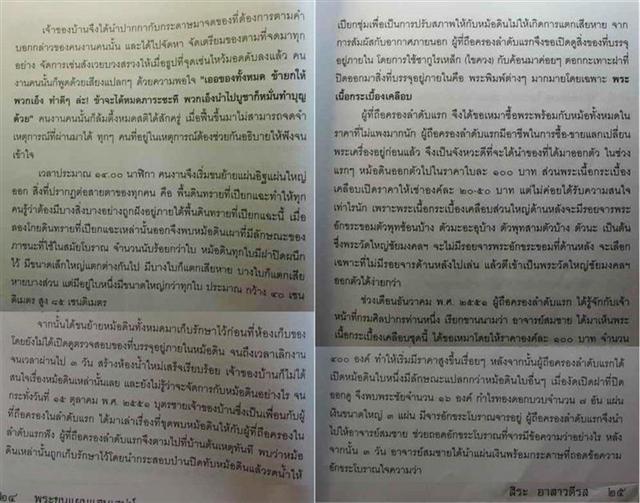 เจ้าของบ้านจึงได้นำปากกากับกระดาษมาจดของที่ต้องการตามคำ
บอกกล่าวของคนงานคนนั้น และได้ไปจัดหา จัดเตรียมของตามที่จดมาทุก
อย่าง จัดการเซ่นสังเวยบวงสรวงให้เมื่อธูปที่จุดเซ่นไหว้มอดดับลงแล้ว คน
งานคนนั้นก็พูดด้วยเสียงแปลกๆ ด้วยความพอใจ "เออของทั้งหมด ข้ายกให้
พวกเอ็ง ทำดีๆ ล่ะ! ข้าจะได้หมดภาระซะที พวกเอ็งนำไปบูชาก็หมั่นทำบุญ
ด้วย" คนงานคนนั้นก็ล้มตึ้งหมดสติได้สักครู่ เมื่อฟื้นขึ้นมาไม่สามารถจดจำ
เหตุการณ์ที่ผ่านมาได้ ทุกๆ คนที่อยู่ในเหตุการณ์ต้องช่วยกันอธิบายให้ฟังจน
เข้าใจ
เวลาประมาณ ๑๔.๐๐ นาฬิกา คนงานจึงเริ่มขนย้ายแผ่นอิฐแผ่นใหญ่
ออก สิ่งที่ปรากฏต่อสายตาของทุกคน คือ พื้นดินทรายที่เปียกแฉะทำให้ทุก
คนรู้ว่าต้องมีบางสิ่งบางอย่างถูกฝังอยู่ภายใต้พื้นดินทรายที่เปียกแฉะนี้ เมื่อ
ลองโกยดินทรายที่เปียกแฉะเหล่านั้นออกจึงพบหม้อดินเผาที่มีลักษณะของ
ภาชนะที่ใช้ในสมัยโบราณ จำนวนนับร้อยกว่าใบ หม้อดินทุกใบมีฝาปิดผนึก
ไว้ มีขนาดเล็กใหญ่แตกต่างกันไป มีบางใบก็แตกเสียหาย บางใบก็แตกเสีย
หายบางส่วน แต่มีอยู่ใบหนึ่งมีขนาดใหญ่กว่าทุกใบ ประมาณ กว้าง ๔๐ เซน
ติเมตร สูง ๘๕ เซนติเมตร
จากนั้นได้ขนย้ายหม้อดินทั้งหมดมาเก็บรักษาไว้ก่อนที่ห้องเก็บของ
โดยยังไม่ได้เปิดดูตรวจสอบของที่บรรจุอยู่ภายในหม้อดิน จนถึงเวลาเลิกงาน
จนเวลาผ่านไป ๓ วัน สร้างห้องน้ำใหม่เสร็จเรียบร้อย เจ้าของบ้านก็ไม่ได้
สนใจเรื่องหม้อดินเหล่านั้นเลย และยังไม่รู้ว่าจะจัดการกับหม้อดินอย่างไร จน
กระทั่งวันที่ ๑๕ ตุลาคม พ.ศ. ๒๕๕๑ บุตรชายเจ้าของบ้านซึ่งเป็นเพื่อนกับผู้
ที่ถือครองในลำดับแรก ได้มาเล่าเรื่องที่ขุดพบหม้อดินให้กับผู้ที่ถือครองใน
ลำดับแรกฟัง ผู้ที่ถือครองลำดับแรกจึงตามไปที่บ้านต้นเหตุทันที พบว่าหม้อ
ดินเหล่านั้นถูกเก็บรักษาไว้โดยนำกระสอบป่านปิดทับหม้อดินแล้วรดน้ำให้
๒๔
เปียกชุ่มเพื่อเป็นการปรับสภาพให้กับหม้อดินไม่ให้เกิดการแตกเสียหาย จาก
การสัมผัสกับอากาศภายนอก ผู้ที่ถือครองลำดับแรกจึงขอเปิดดูสิ่งของที่บรรจุ
อยู่ภายใน โดยการใช้ชากูไรเหล็ก (ไขควง) กับค้อนมาค่อยๆ ตอกเทาะฝาที่
ปิดออกมาสิ่งที่บรรจุอยู่ภายในคือ พระพิมพ์ต่างๆ มากมายโดยเฉพาะ พระ
เนื้อกระเบื้องเคลือบ
ผู้ที่ถือครองลำดับแรก จึงได้ขอเหมาซื้อพระพร้อมกับหม้อทั้งหมดใน
ราคาที่ไม่แพงมากนัก ผู้ที่ถือครองลำดับแรกมีอาชีพในการซื้อ-ขายแลกเปลี่ยน
พระเครื่องอยู่ก่อนแล้ว จึงเป็นจังหวะดีที่จะได้นำของที่ได้มาออกตัว ในช่วง
แรกๆ หม้อดินออกตัวไปในราคาใบละ ๑๐๐ บาท ส่วนพระเนื้อกระเบื้อง
เคลือบเปิดราคาให้เช่าองค์ละ ๒๐-๕๐ บาท แต่ไม่ค่อยได้รับความสนใจ
เท่าไรนัก เพราะพระเนื้อกระเบื้องเคลือบส่วนใหญ่ด้านหลังจะมีรอยจารพระ
อักขระขอมตัวพุทซ้อนบ้าง ตัวมะอะอุบ้าง ตัวพุทสามตัวบ้าง ตัวนะ เป็นต้น
ซึ่งพระวัดใหญ่ชัยมงคลฯ จะไม่มีรอยจารพระอักขระขอมที่ด้านหลัง จะเลือก
เฉพาะที่ไม่มีรอยจารด้านหลังไปเล่น แล้วตีเช้าเป็นพระวัดใหญ่ชัยมงคลฯ
ออกตัวได้ง่ายกว่า
ช่วงเดือนธันวาคม พ.ศ. ๒๕๕๑ ผู้ถือครองลำดับแรก ได้รู้จักกับเจ้า
หน้าที่กรมศิลปากรท่านหนึ่ง เรียกขานนามว่า อาจารย์สมชาย ได้มาเห็นพระ
เนื้อกระเบื้องเคลือบชุดนี้ ได้ขอเหมาโดยให้ราคาองค์ละ ๑๐๐ บาท จำนวน
๔๐๐ องค์ ทำให้เริ่มมีราคาสูงขึ้นเรื่อยๆ หลังจากนั้นผู้ถือครองลำดับแรกได้
เปิดหม้อดินใบหนึ่งมีลักษณะแปลกกว่าหม้อดินใบอื่นๆ เมื่องัดเปิดฝาที่ปิด
ออกดู จึงพบพระชัยจำนวน ๑๖ องค์ กำไรทองดอกบวบจำนวน ๗ อัน แผ่น
เงินขนาดใหญ่ ๓ แผ่น มีจารอักขระโบราณจารอยู่ ผู้ถือครองลำดับแรกจึงนำ
ไปให้อาจารย์สมชาย ช่วยถอดอักขระโบราณที่จารมีข้อความว่าอย่างไร หลัง
จากนั้น ๓ วัน อาจารย์สมชายได้นำแผ่นเงินพร้อมกระดาษที่ถอดข้อความ
อักขระโบราณใจความว่า
สิระ อาสาวดีรส ๒๕